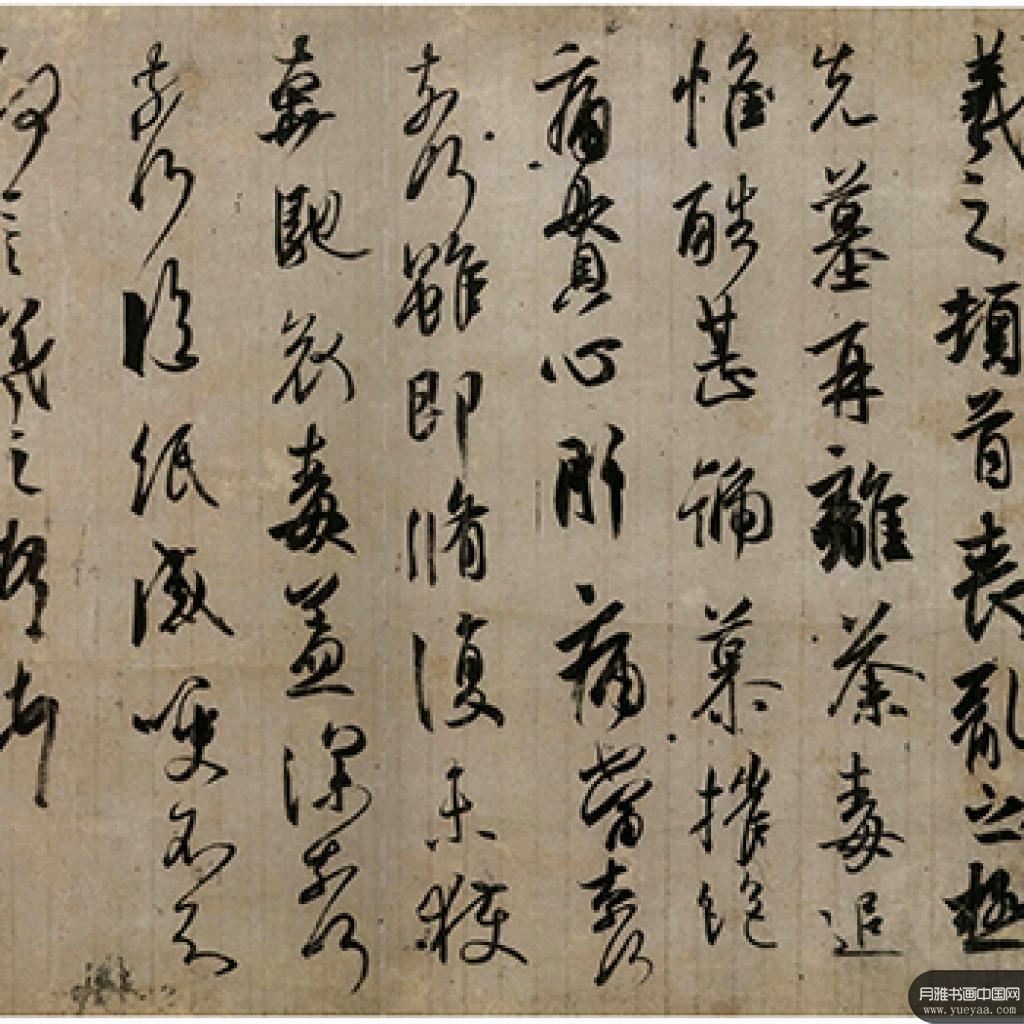 羲之頓首喪亂之極
先墓再離荼毒追
惟酷甚號慕摧絕
痛貫心肝痛當奈何
奈何雖即脩復未獲
奔馳哀毒益深奈何
奈何臨紙感哽不知
何言羲之頓首
月雅书画中国网
www.yueyaa.com